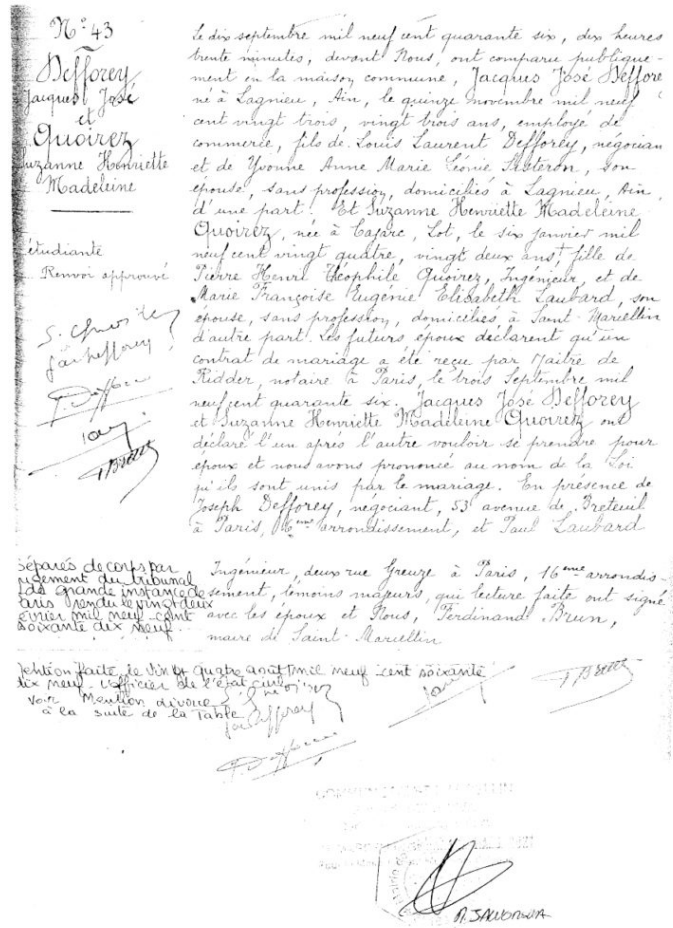 N° 43
Defforey
Jacques José
et
Quoirez
Suzanne Henriette
Madeleine
étudiante
Renvoi approuvé
Le dix septembre mil neuf cent quarante six, dix heures
trente minutes, devant Nous, ont comparu publique-
ment en la maison commune, Jacques José Deffore
né à Lagnieu, Ain, le quinze novembre mil neuf
cent vingt trois, vingt trois ans, employé de
commerce, fils de Louis Laurent Defforey, négocian
et de Yvonne Anne Marie Léonie Sisteron, son
épouse, sans profession, domiciliés à Lagnieu, Ain,
d'une part. Et Suzanne Henriette Madeleine
Quoirez, née à Cajarc, Lot, le six janvier mil
neuf cent vingt quatre, vingt deux ans, fille de
Pierre Henri Théophile Quoirez, Ingénieur, et de
Marie Françoise Eugénie Elisabeth Laubard, son
épouse, sans profession, domiciliés à Saint-Marcellin
d'autre part. Les futurs époux déclarent qu'un
contrat de mariage a été reçu par Maître de
Ridder, notaire à Paris, le trois Septembre mil
neuf cent quarante six. Jacques José Defforey
et Suzanne Henriette Madeleine Quoirez ont
déclaré l'un après l'autre vouloir se prendre pour
époux et nous avons prononcé au nom de la Loi
qu'ils sont unis par le mariage. En présence de
Joseph Defforey, négociant, 53 avenue de Breteuil
à Paris, arrondissement, et Paul Laubard
Ingénieur, deux rue Greuze à Paris, 16eme arrondis-
sement, témoins majeurs, qui lecture faite ont signé
avec les époux et Nous, Ferdinand Brun,
maire de Saint-Marcellin
séparés de corps par
jugement du tribunal
de grande instance de
Paris rendu le vingt deux
février mil neuf cent
soixante dix neuf
Mention faite le vingt quatre août mil neuf cent soixante
dix neuf. L'officier de l'état civil
voir Mention divorce
à la suite de la Table